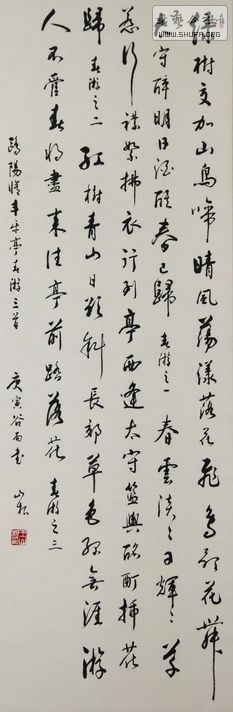 綠樹交加山鳥啼晴風蕩漾落花飛鳥歌花舞
太守醉明日酒醒春已歸 春游之一 春雲淡〻日輝〻草
惹行襟絮拂衣行到亭西逢太守籃輿酩酊插花
歸 春游之二 紅樹青山日欲斜長郊草色綠無涯游
人不管春將盡來往亭前踏落花 春游之三
歐陽脩豐樂亭春游三首 庚寅谷雨書
WWW.SHUFA.ORG